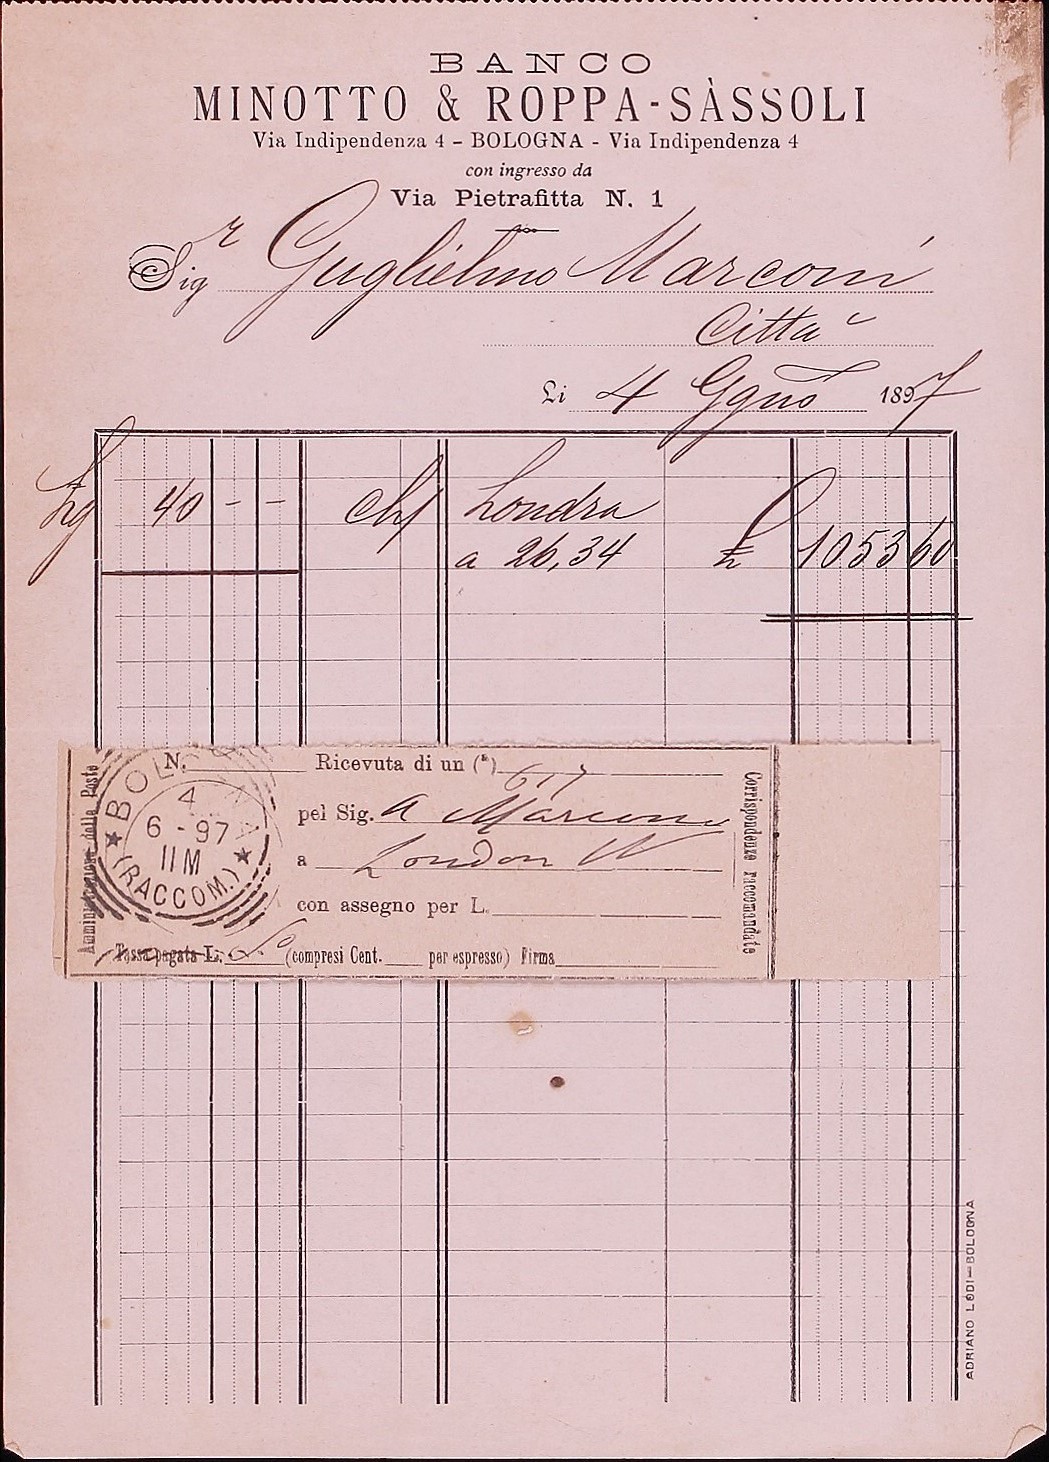 BANCO
MINOTTO & ROPPA-SÀSSOLI
Via Indipendenza 4 – BOLOGNA – Via Indipendenza 4
con ingresso da
Via Pietrafitta N. 1
Sig r Guglielmo Marconi
Città
Li 4 Ggno 1897
40 - - Londra
a 26,34 105360
N. Ricevuta di un (*) 617
pel Sig. A Marconi
a London W
con assegno per L.
Tassa pagata L. (compresi Cent. per espresso) Firma
Amministrazione delle Poste
Corrispondenze raccomandate
BOLOGNA
4
6 - 97
11M
(RACCOM.)
ADRIANO LODI—BOLOGNA